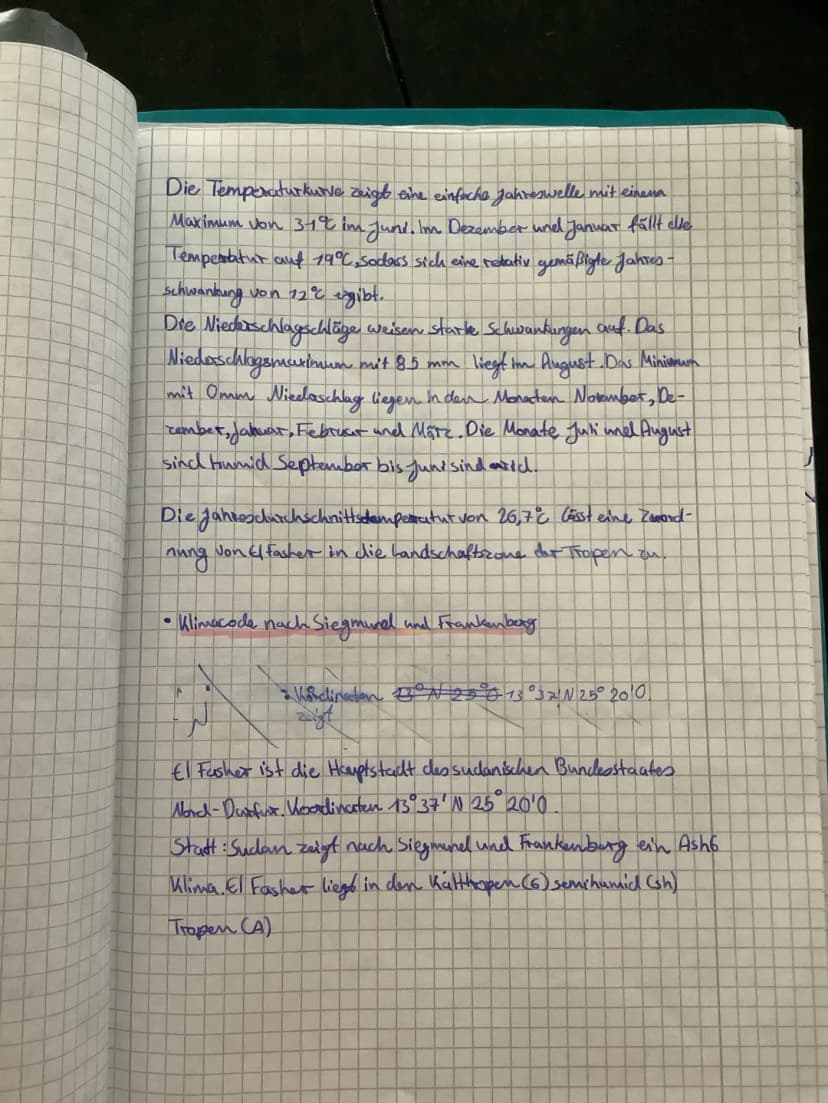 Die Temperaturkurve zeigt eine einfache Jahreswelle mit einem
Maximum von 31°C im Juni. Im Dezember und Januar fällt die
Temperatur auf 19°C, sodass sich eine relativ gemäßigte Jahres-
schwankung von 12°C ergibt.
Die Niederschlagschläge weisen starke Schwankungen auf. Das
Niederschlagsmaximum mit 85 mm liegt im August. Das Minimum
mit 0mm Niederschlag liegen in den Monaten November, De-
zember, Januar, Februar und März. Die Monate Juli und August
sind humid September bis Juni sind arid.
Die Jahresdurchschnittstemperatur von 26,7°C lässt eine Zuord-
nung von El Fasher in die Landschaftszone der Tropen zu.
• Klimacode nach Siegmund und Frankenberg
Koordinaten 13°N 25°O 13°37'N 25°20'O
zeigt
El Fasher ist die Hauptstadt des sudanischen Bundesstaates
Nord-Darfur. Koordinaten 13°37'N 25°20'O.
Statt: Sudan zeigt nach Siegmund und Frankenberg ein Ash6
Klima. El Fasher liegt in den Kalttropen (6) semihumid (sh)
Tropen (A)